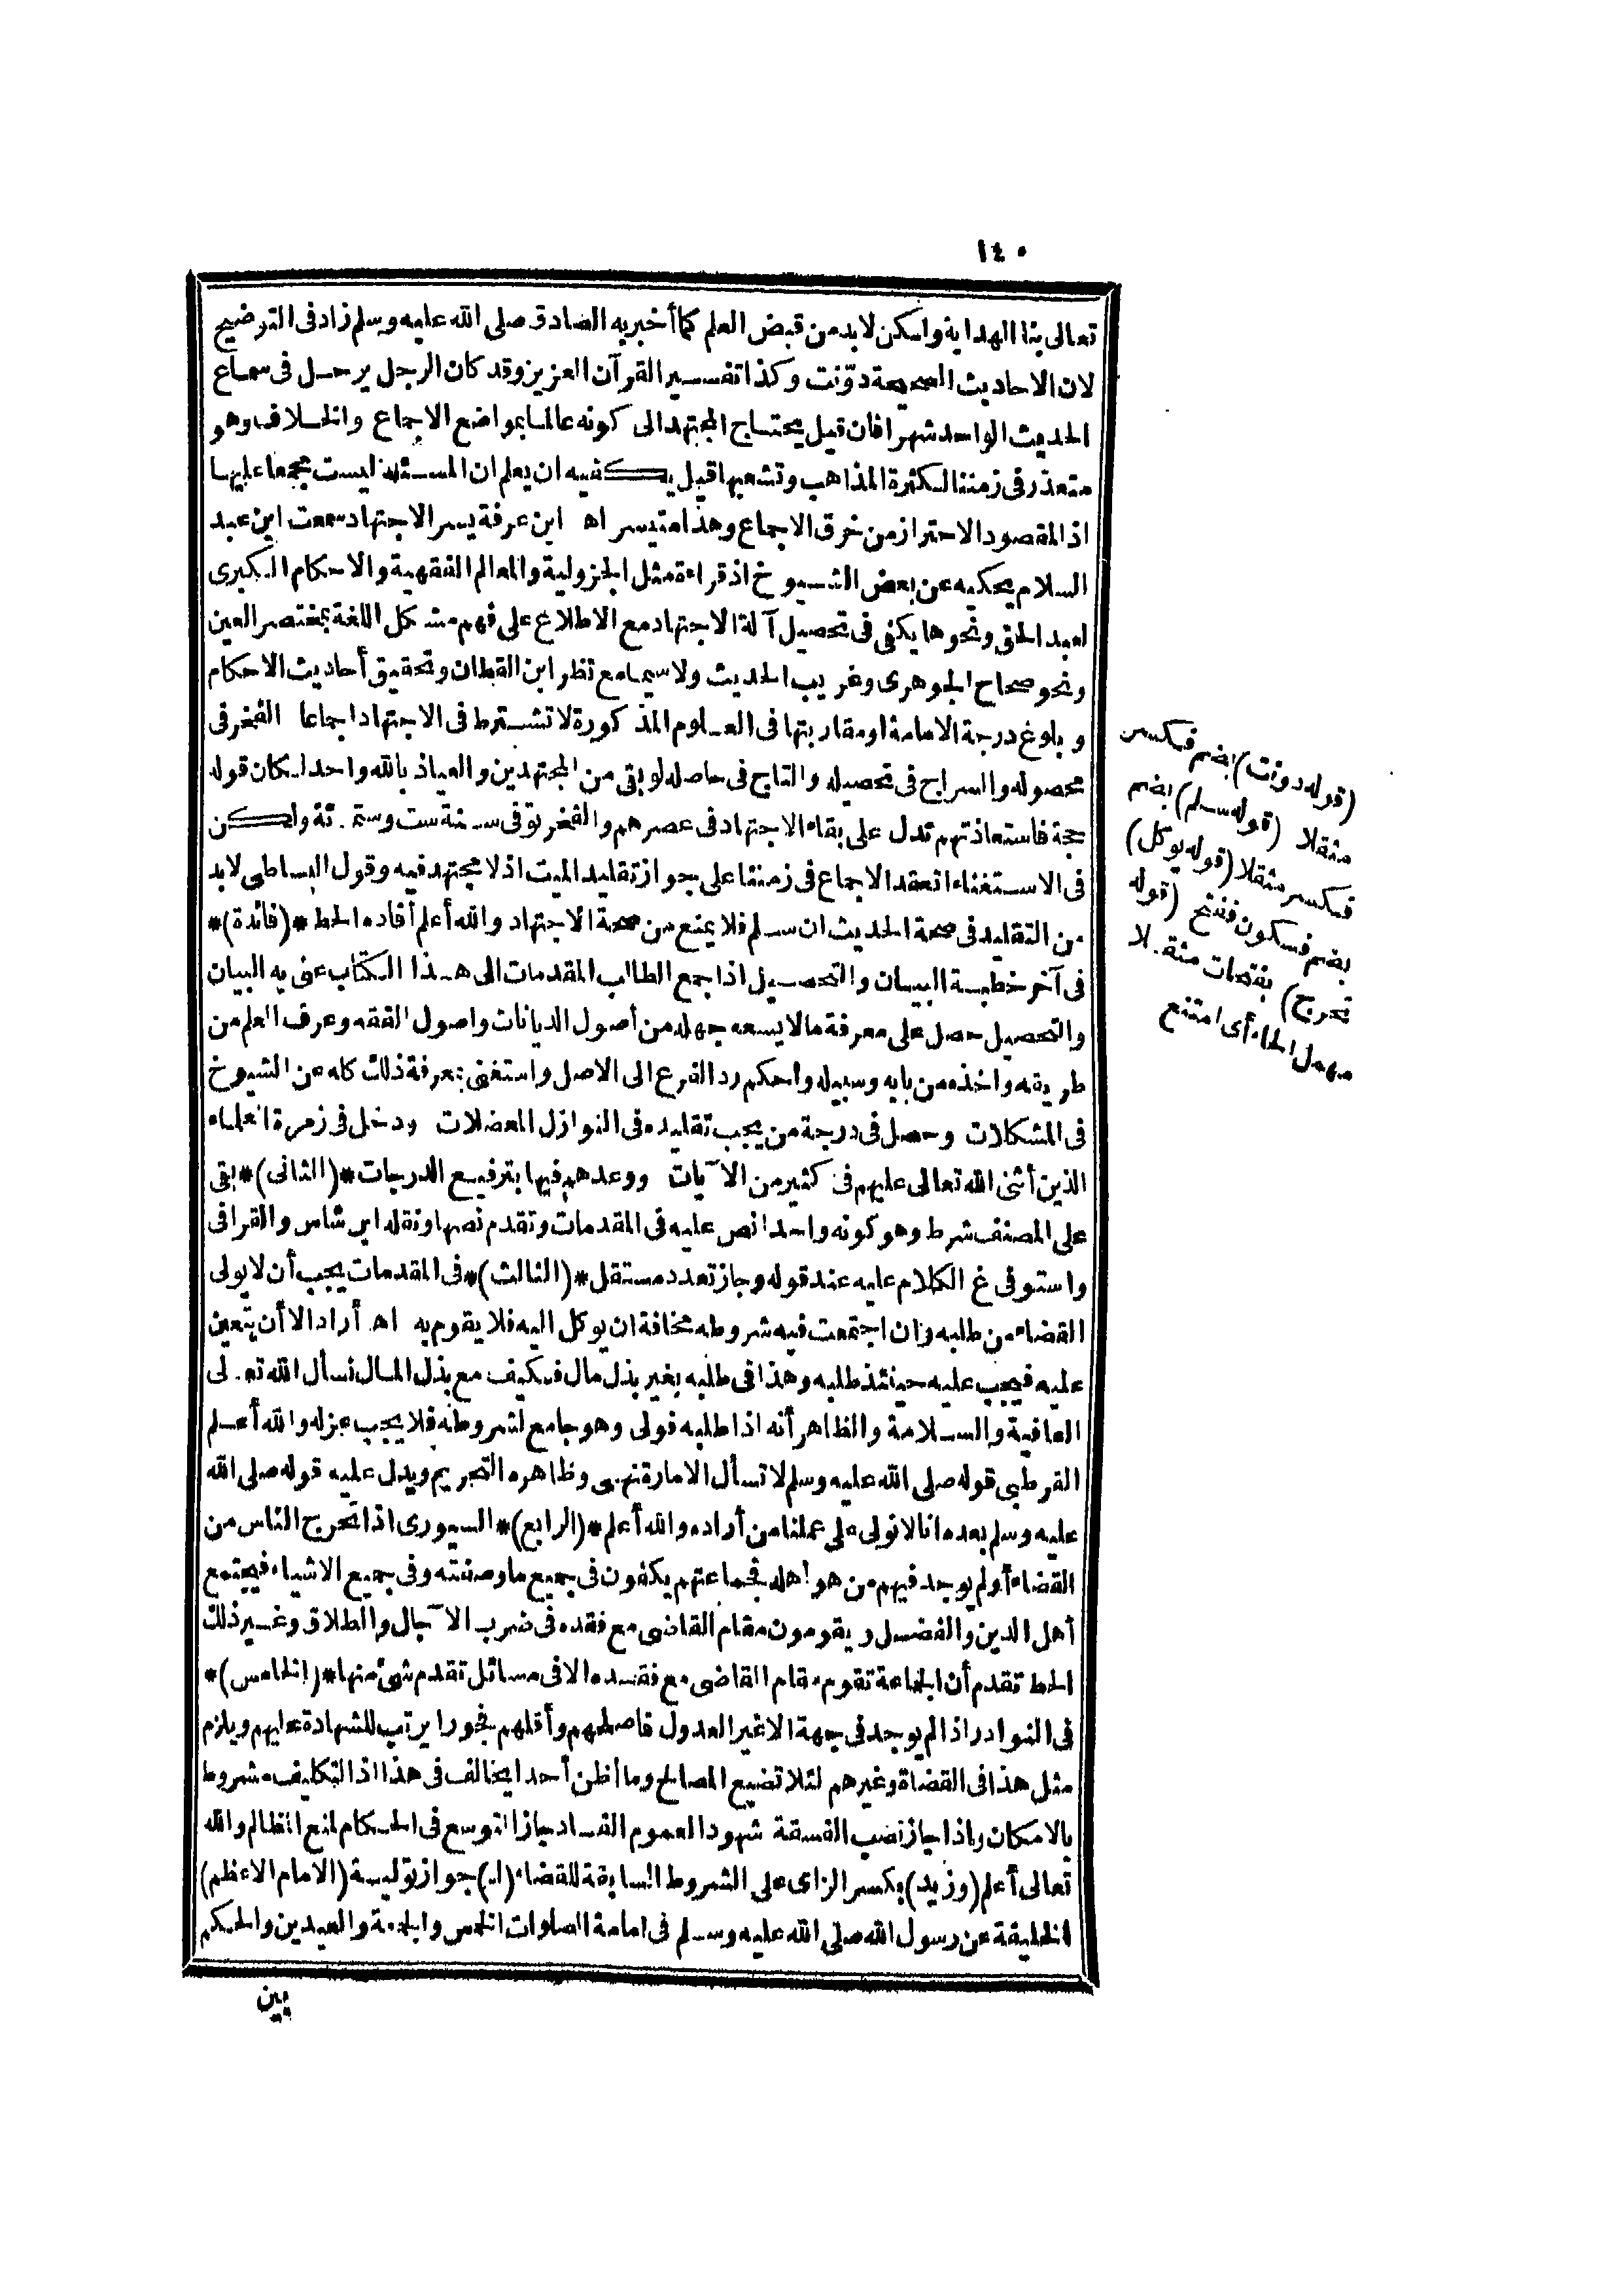 ١٤٠
تعالى بنا الهداية ولكن لا بد من قبض العلم كما أخبر به الصادق صلى الله عليه وسلم زاد فى التوضيح
لان الاحاديث الصحيحة دوّنت وكذا تفسير القرآن العزيز وقد كان الرجل يرحل فى سماع
الحديث الواحد شهرا فان قيل يحتاج المجتهد الى كونه عالما بمواضع الاجماع والخلاف وهو
متعذر فى زمننا لكثرة المذاهب وتشعبها قيل يكفيه ان يعلم ان المسئلة ليست مجمعا عليها
اذ المقصود الاحتراز من خرق الاجماع وهذا متيسر اه ابن عرفة يسر الاجتهاد سمعت ابن عبد
السلام يحكيه عن بعض الشيوخ اذ قراءة مثل الجزولية والمعالم الفقهية والاحكام الكبرى
لعبد الحق ونحوها يكفى فى تحصيل آلة الاجتهاد مع الاطلاع على فهم مشكل اللغة بمختصر العين
ونحو صحاح الجوهرى وغريب الحديث ولا سيما مع نظر ابن القطان وتحقيق أحاديث الاحكام
وبلوغ درجة الامامة او مقاربتها فى العلوم المذكورة لا تشترط فى الاجتهاد اجماعا الفخر فى
محصوله والسراج فى تحصيله والتاج فى حاصله لو بقى من المجتهدين والعياذ بالله واحد لكان قوله
حجة فاستعاذتهم تدل على بقاء الاجتهاد فى عصرهم والفخر توفى سنة ست وستمائة ولكن
فى الاستغناء انعقد الاجماع فى زمننا على جواز تقليد الميت اذ لا مجتهد فيه وقول البساطى لا بد
من التقليد فى صحة الحديث ان سلم فلا يمنع من صحة الاجتهاد والله أعلم أفاده الحط *(فائدة)*
فى آخر خطبة البيان والتحصيل اذا جمع الطالب المقدمات الى هذا الكتاب عنى به البيان
والتحصيل حصل على معرفة ما لا يسعه جهله من أصول الديانات واصول الفقه وعرف العلم من
طريقه واخذه من بابه وسبيله واحكم رد الفرع الى الاصل واستغنى بمعرفة ذلك كله عن الشيوخ
فى المشكلات وحصل فى درجة من يجب تقليده فى النوازل المعضلات ودخل فى زمرة العلماء
الذين أثنى الله تعالى عليهم فى كثير من الآيات ووعدهم فيها بترفيع الدرجات *(الثانى)* بقى
على المصنف شرط وهو كونه واحدا نص عليه فى المقدمات وتقدم نصها ونقله ابن شاس والقرافى
واستوفى غ الكلام عليه عند قوله وجاز تعدد مستقل *(الثالث)* فى المقدمات يجب أن لا يولى
القضاء من طلبه وان اجتمعت فيه شروطه مخافة ان يوكل اليه فلا يقوم به اه أراد الا أن يتعين
عليه فيجب عليه حينئذ طلبه وهذا فى طلبه بغير بذل مال فكيف مع بذل المال نسأل الله تعالى
العافية والسلامة والظاهر أنه اذا طلبه فولى وهو جامع لشروطه فلا يجب عزله والله أعلم
القرطبى قوله صلى الله عليه وسلم لا تسأل الامارة نهى وظاهره التحريم ويدل عليه قوله صلى الله
عليه وسلم بعده انا لا نولى على عملنا من أراده والله أعلم *(الرابع)* السيورى اذا تحرج الناس من
القضاء أو لم يوجد فيهم من هو اهله فجماعتهم يكفون فى جميع ما وصفته وفى جميع الاشياء فيجتمع
أهل الدين والفضل ويقومون مقام القاضى مع فقده فى ضرب الآجال والطلاق وغير ذلك
الحط تقدم أن الجماعة تقوم مقام القاضى مع فقده الا فى مسائل تقدم شئ منها *(الخامس)*
فى النوادر اذا لم يوجد فى جهة الا غير العدول فاصلحهم وأقلهم فجورا يرتب للشهادة عليهم ويلزم
مثل هذا فى القضاة وغيرهم لئلا تضيع المصالح وما اظن أحدا يخالف فى هذا اذ التكليف مشروط
بالامكان واذا جاز نصب الفسقة شهودا لعموم الفساد جاز التوسع فى الحكام لمنع المظالم والله
تعالى أعلم (وزيد) بكسر الزاى على الشروط السابقة للقضاء (ا) جواز تولية (الامام الاعظم)
الخليفة عن رسول الله صلى الله عليه وسلم فى امامة الصلوات الخمس والجمعة والعيدين والحكم
بين
(قوله دونت) بضم فكسر
مثقلا (قوله سلم) بضم
فكسر مثقلا (قوله يوكل)
بضم فسكون ففتح (قوله
تحرج) بفتحات مثقلا
مهمل الحاء أى امتنع